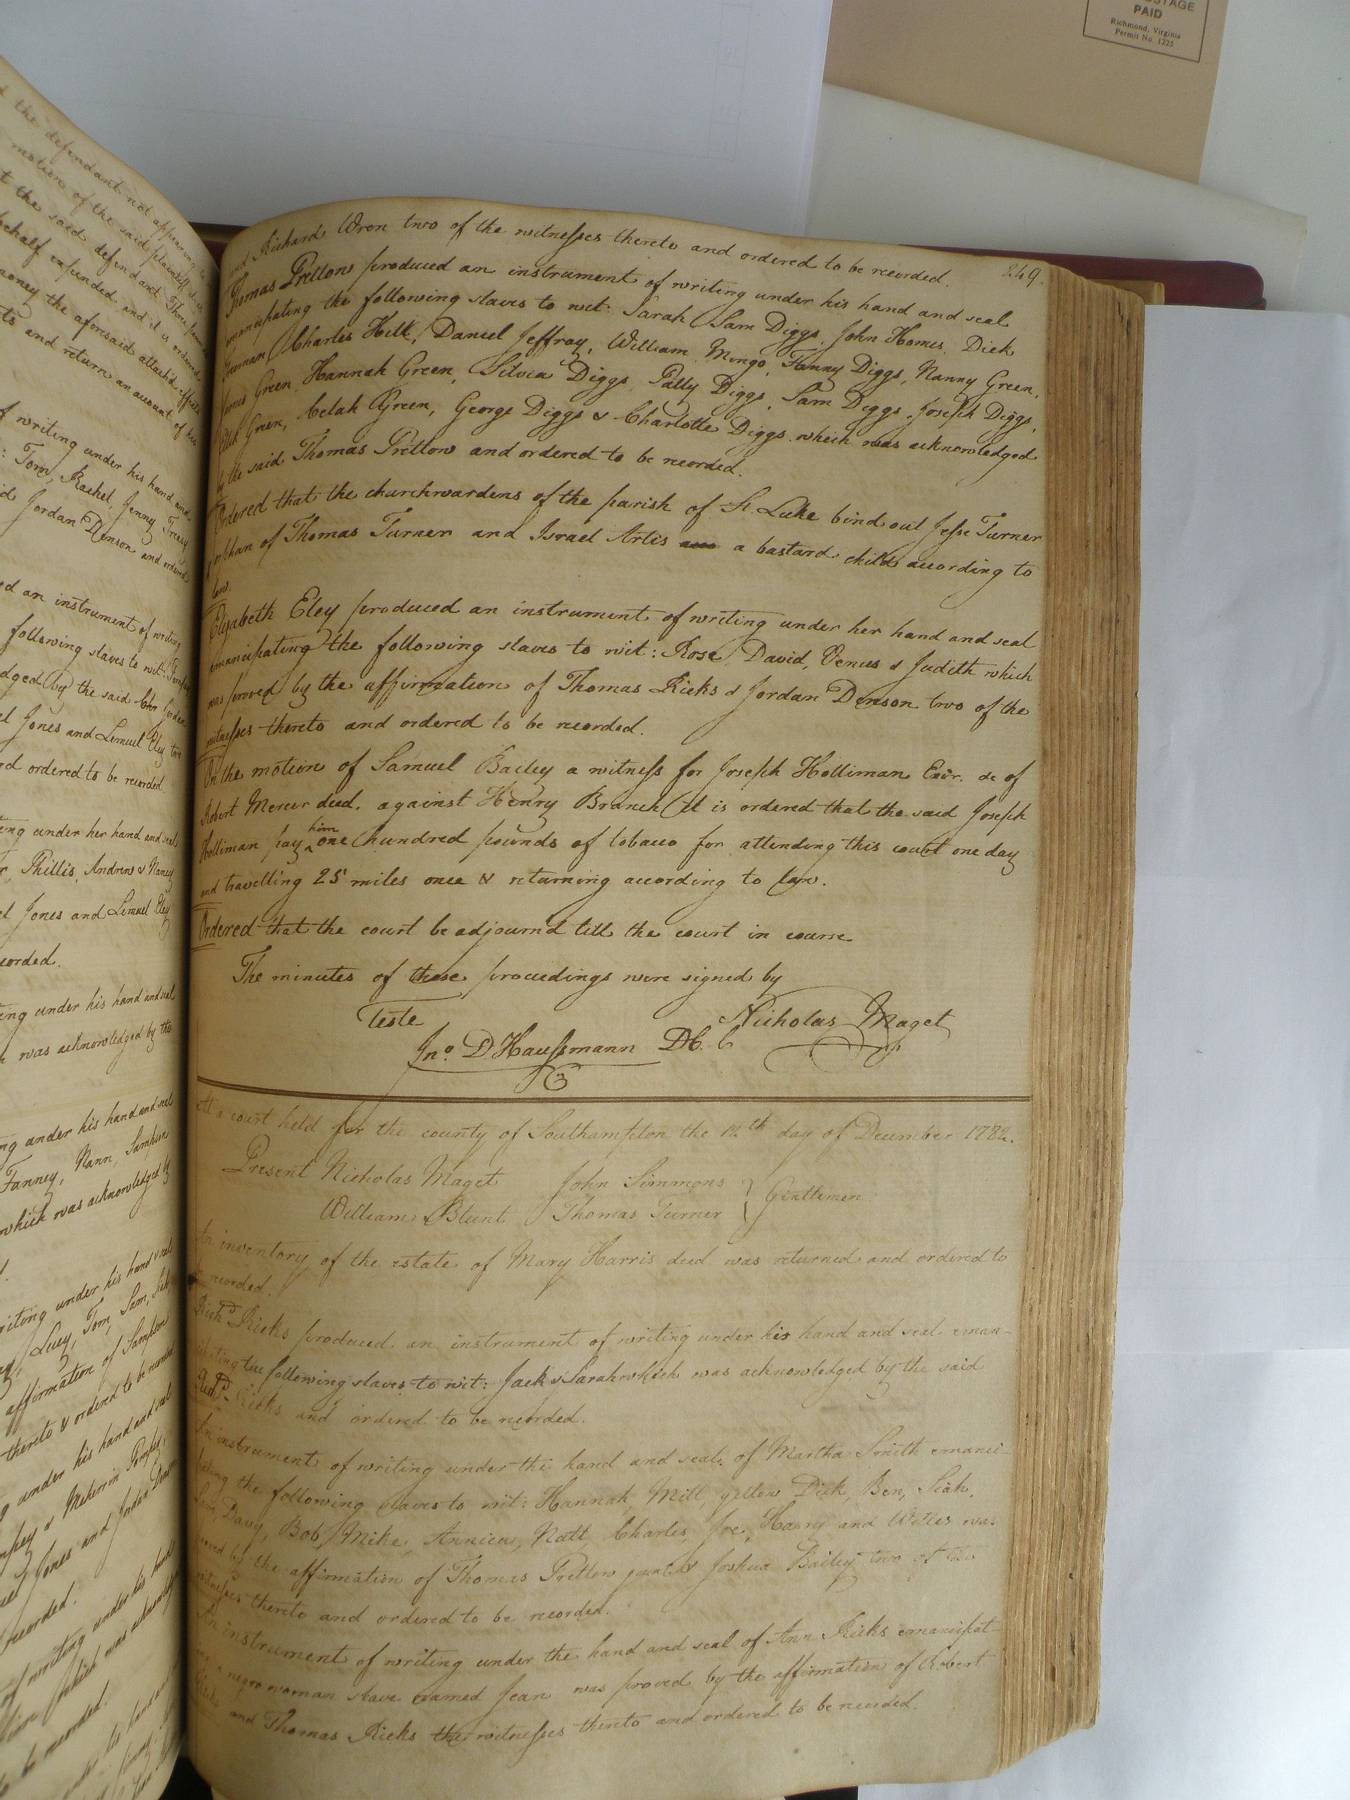 STAGE
PAID
Richmond, Virginia
Permit No. 1225
d the defendant not appearing
motion of the said plaintiff it is
t the said defendant Thos
behalf expended and it is ordered
money the aforesaid attach'd effects
ts and return an account of his
f writing under his hand and
: Tom, Rachel, Jenny
id Jordan Denson and ordered
ed an instrument of writing
following slaves to wit:
dged by the said
el Jones and Lemuel Eley two
nd ordered to be recorded
ting under her hand and seal
Phillis, Andrew & Nancy
el Jones and Lemuel Eley
corded.
ing under his hand and seal
was acknowledged by the
ng under his hand and seal
Fanney, Nann, Sampson
which was acknowledged by
riting under his hand & seal
Lucy, Tom, Sam,
affirmation of Sampson
thereto & ordered to be recorded
g under his hand and seal
mpey & Meherrin Pompey,
el Jones and Jordan Denson
recorded.
of writing under his hand
which was acknowledged
to be recorded.
249.
and Richard Wren two of the witnesses thereto and ordered to be recorded.
Thomas Pretlow produced an instrument of writing under his hand and seal
emancipating the following slaves to wit: Sarah, Sam Diggs, John Homes, Dick
Charles Hill, Daniel Jeffray, William Mingo, Fanny Diggs, Nanny Green,
James Green, Hannah Green, Silvia Diggs, Patty Diggs, Sam Diggs, Joseph Diggs,
Green, Celah Green, George Diggs & Charlotte Diggs which was acknowledged
by the said Thomas Pretlow and ordered to be recorded.
Ordered that the churchwardens of the parish of St. Luke bind out Jesse Turner
orphan of Thomas Turner and Israel Artis a bastard child according to
law.
Elizabeth Eley produced an instrument of writing under her hand and seal
emancipating the following slaves to wit: Rose, David, Venus & Judith which
was proved by the affirmation of Thomas Ricks & Jordan Denson two of the
witnesses thereto and ordered to be recorded.
On the motion of Samuel Bailey a witness for Joseph Holliman Exor. &c of
Robert Mercer decd. against Henry Branch it is ordered that the said Joseph
Holliman pay him one hundred pounds of tobacco for attending this court one day
and travelling 25 miles once & returning according to law.
Ordered that the court be adjournd till the court in course
The minutes of these proceedings were signed by
Teste
Nicholas Maget
Jno. D Haussmann D. C. C
At a court held for the county of Southampton the 12th day of December 1782.
Present Nicholas Maget John Simmons } Gentlemen
William Blunt Thomas Turner
An inventory of the estate of Mary Harris decd was returned and ordered to
be recorded.
Richd. Ricks produced an instrument of writing under his hand and seal eman-
cipating the following slaves to wit: Jack & Sarah which was acknowledged by the said
Richd. Ricks and ordered to be recorded.
An instrument of writing under the hand and seal of Martha Smith emanci-
pating the following slaves to wit: Hannah, Mill, yellow Dick, Ben, Siah,
Sam, Davy, Bob, Mike, Annica, Natt, Charles, Joe, Harry and Willis was
proved by the affirmation of Thomas Pretlow junr. & Joshua Bailey two of the
witnesses thereto and ordered to be recorded.
An instrument of writing under the hand and seal of Ann Ricks emancipat-
ing a negro woman slave named Jean was proved by the affirmation of Robert
Ricks and Thomas Ricks the witnesses thereto and ordered to be recorded.